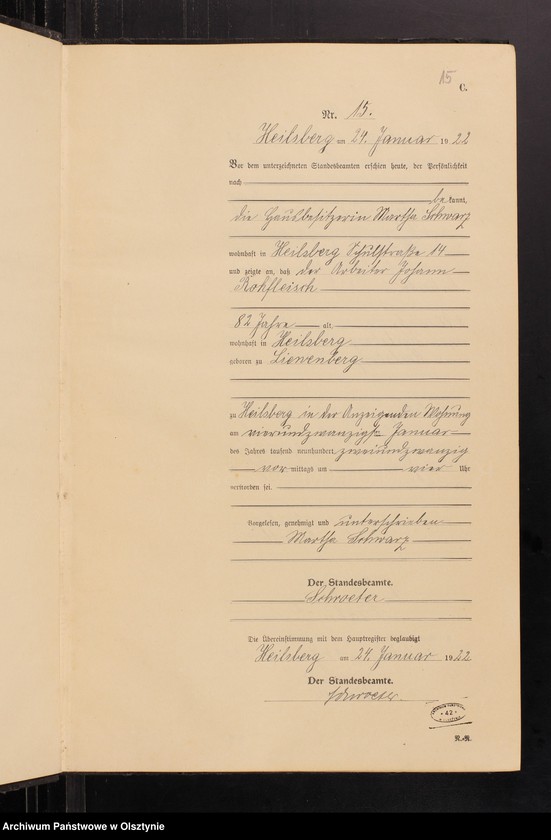 15
C.
Nr. 15.
Heilsberg am 24. Januar 1922
Vor dem unterzeichneten Standesbeamten erschien heute, der Persönlichkeit
nach
bekannt,
die Hausbesitzerin Martha Schwarz
wohnhaft in Heilsberg Schulstraße 14
und zeigte an, daß der Arbeiter Johann
Rohfleisch
82 Jahre alt,
wohnhaft in Heilsberg
geboren zu Liewenberg
zu Heilsberg in der Anzeigenden Wohnung
am vierundzwanzigsten Januar
des Jahres tausend neunhundert zweiundzwanzig
vor mittags um vier Uhr
verstorben sei.
Vorgelesen, genehmigt und unterschrieben
Martha Schwarz
Der Standesbeamte.
Schroeter
Die Übereinstimmung mit dem Hauptregister beglaubigt
Heilsberg am 24. Januar 1922
Der Standesbeamte.
Schroeter.
42
R.-R.
Archiwum Państwowe w Olsztynie